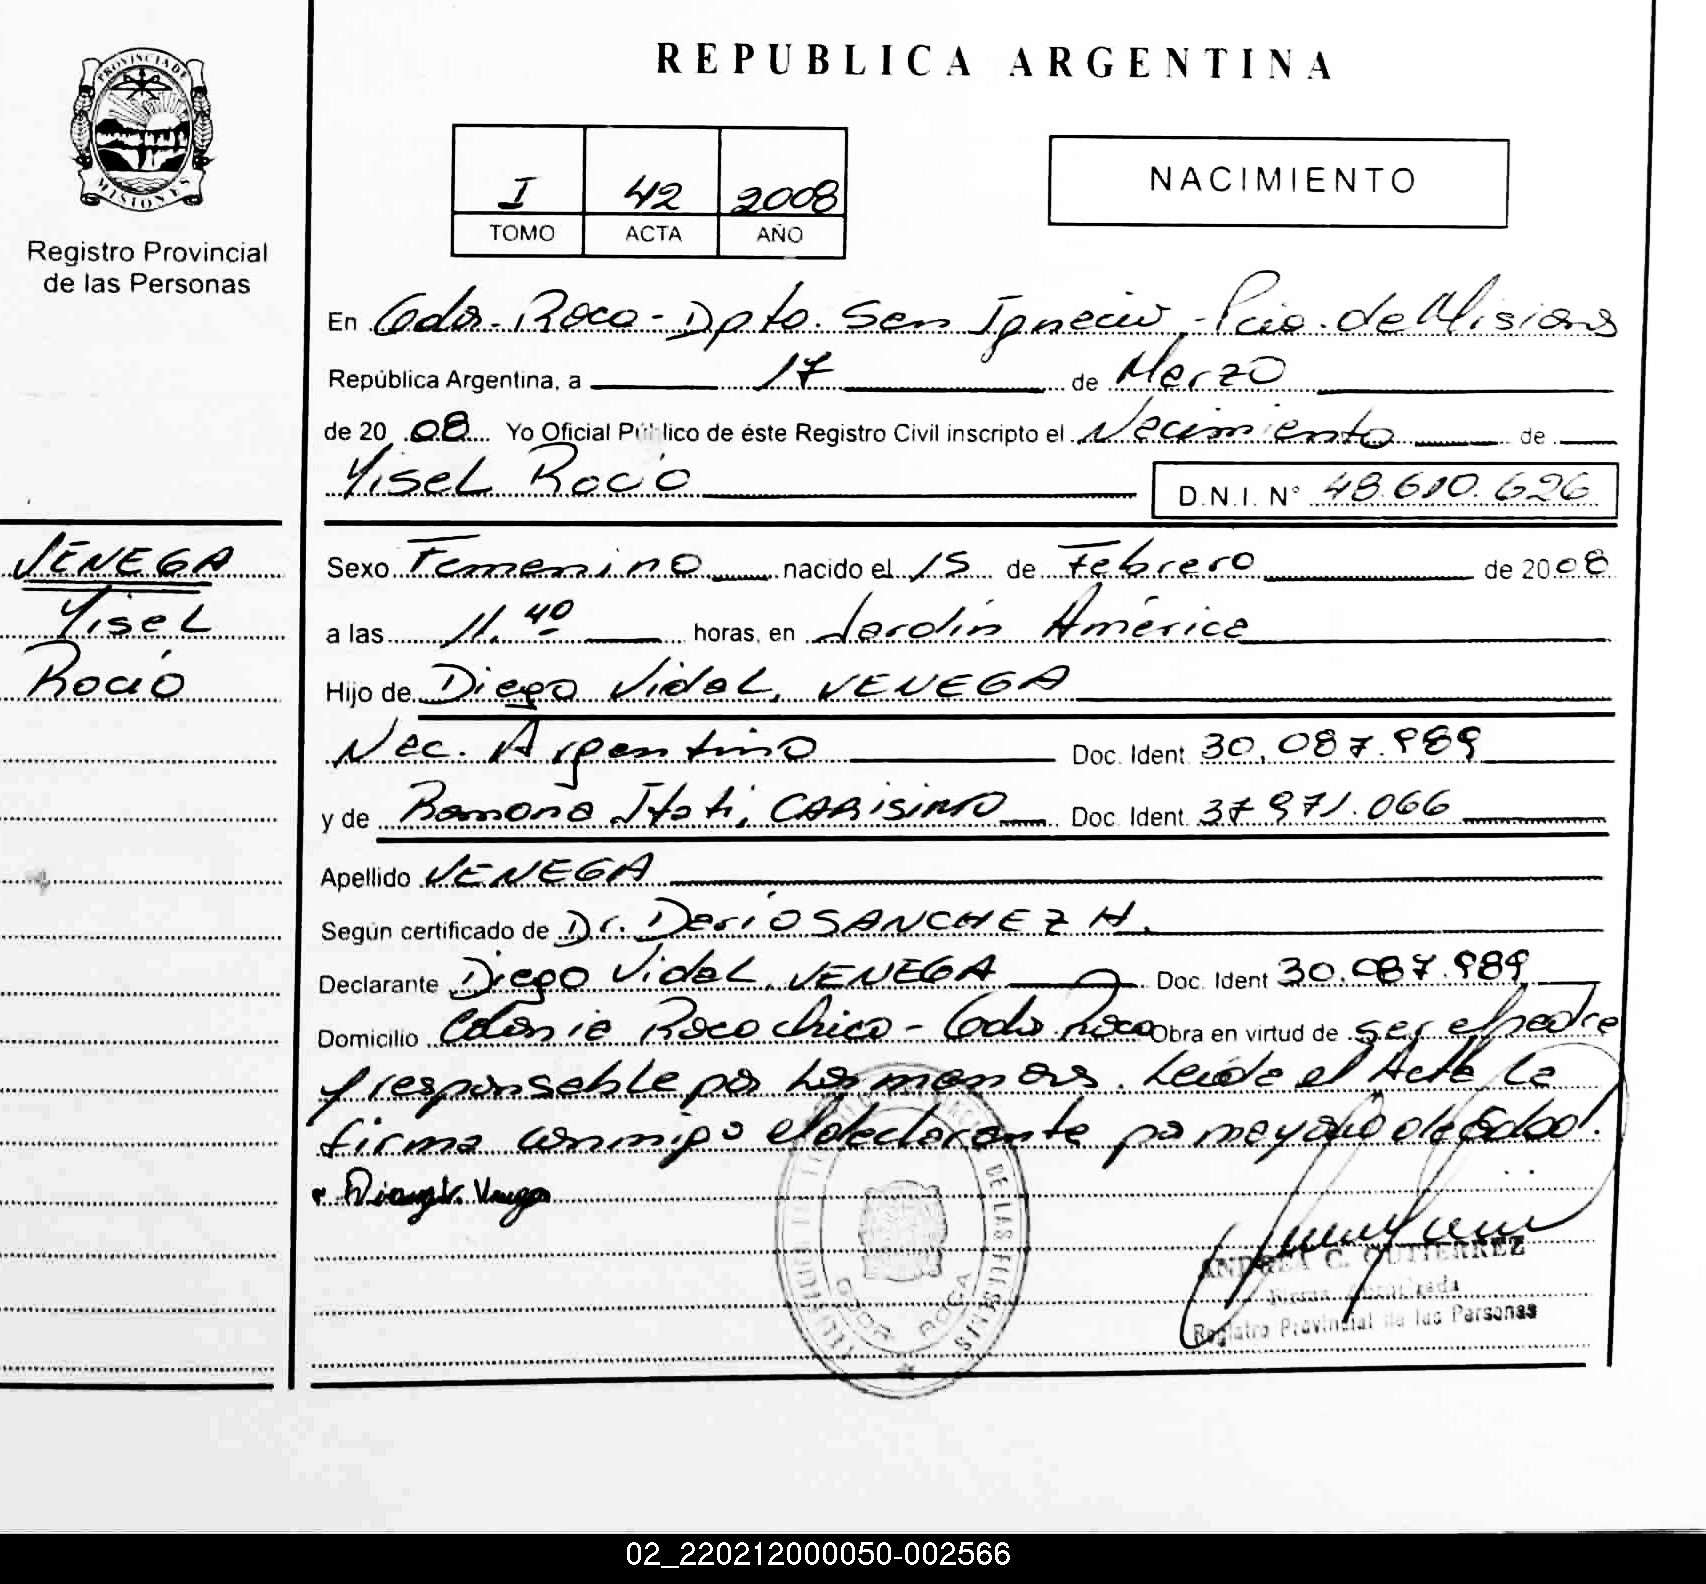 PROVINCIA DE
MISIONES
Registro Provincial
de las Personas
REPUBLICA ARGENTINA
I 42 2008
TOMO ACTA AÑO
NACIMIENTO
En Gdor. Roca - Dpto. San Ignacio - Pcia. de Misiones
República Argentina, a 17 de Marzo
de 2008 Yo Oficial Público de éste Registro Civil inscripto el Nacimiento de
Yisel Rocio
D.N.I. N° 48.610.626
VENEGA
Yisel
Rocio
Sexo Femenino nacido el 15 de Febrero de 2008
a las 11.40 horas, en Jardín América
Hijo de Diego Vidal, VENEGA
Nac. Argentino Doc. Ident. 30.087.989
y de Ramona Itati, CARISIMO Doc. Ident. 37.971.066
Apellido VENEGA
Según certificado de Dr. Dario SANCHEZ H.
Declarante Diego Vidal, VENEGA Doc. Ident 30.087.989
Domicilio Colonia Roca chica - Gdor. Roca Obra en virtud de ser el padre
y responsable por los menores. Leída el Acta la
firma conmigo el declarante por mayoría de Edad.
ANDREA C. GUTIERREZ
Firma Autorizada
Registro Provincial de las Personas
DE LAS PERSONAS
GDOR ROCA
02_220212000050-002566